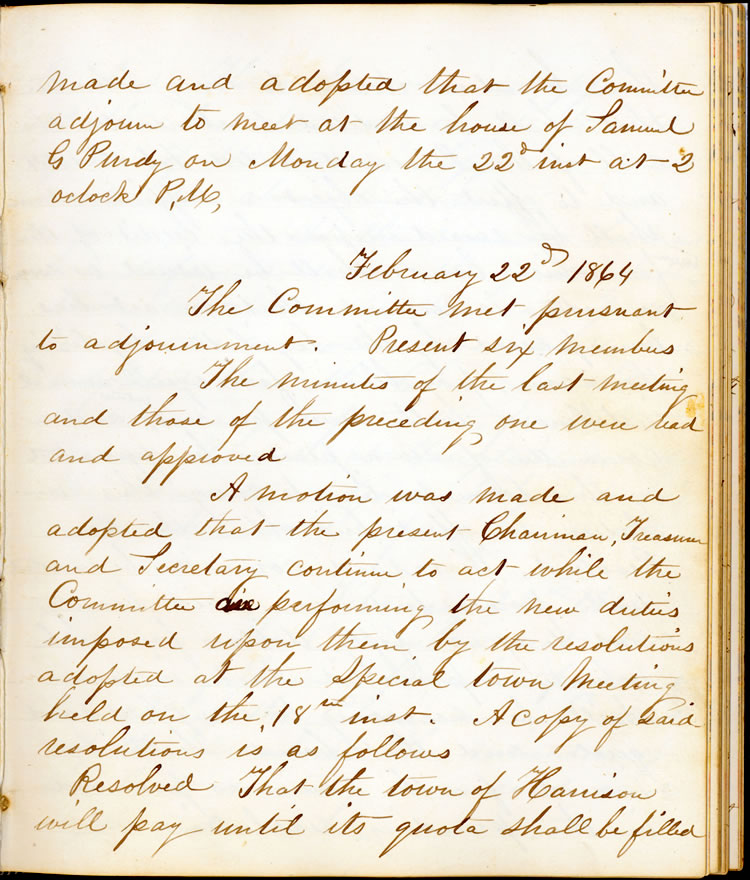 made and adopted that the Committee
adjourn to meet at the house of Samuel
G Purdy on Monday the 22d inst at 2
oclock P.M,
February 22d 1864
The Committee met pursuant
to adjournment. Present six members
The minutes of the last meeting
and those of the preceding one were read
and approved
A motion was made and
adopted that the present Chairman, Treasurer
and Secretary continue to act while the
Committee are performing the new duties
imposed upon them by the resolutions
adopted at the Special town Meeting
held on the 18th inst. A copy of said
resolutions is as follows
Resolved That the town of Harrison
will pay until its quota shall be filled